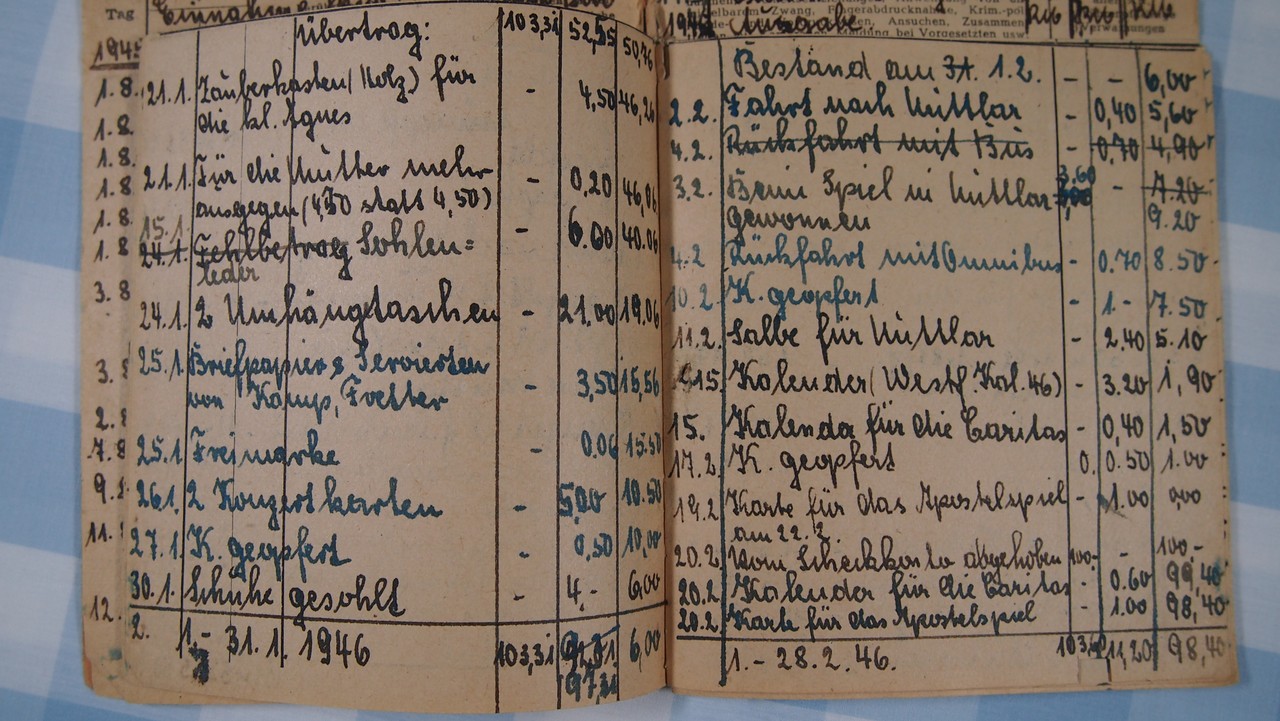 Tag
1945
Übertrag: 103,31 52,55 50,76
21.1. Zauberkasten (Holz) für
die kl. Agnes - 4,50 46,26
21.1. Für die Mutter mehr
ausgegen (4,70 statt 4,50) - 0,20 46,06
15.1.
24.1. Fehlbetrag Sohlen= - 6.00 40.06
leder
24.1. 2 Umhängtaschen - 21.00 19.06
25.1 Briefpapier & Servietten
von Kamp, Fretter - 3,50 15,56
25.1 Freimarke - 0.06 15.50
26.1. 2 Konzertkarten - 5,00 10.50
27.1. K. geopfert - 0,50 10,00
30.1. Schuhe gesohlt - 4.- 6,00
1.- 31.1. 1946 103,31 6,00
97,31
1.8.
1.8.
1.8.
1.8.
1.8.
1.8
3.8
3.8
2.8
7.8
9.
11.
12.
2.
Ausgabe
Bestand am 31. 1.2. - - 6,00
2.2. Fahrt nach Nuttlar - 0,40 5,60
4.2. Rückfahrt mit Bus - 0,70 4,90
3.2. Beim Spiel in Nuttlar 3.60 - 7.20
gewonnen 9.20
4.2 Rückfahrt mit Omnibus - 0.70 8.50
10.2. K. geopfert - 1.- 7.50
11.2. Salbe für Nuttlar - 2.40 5.10
15. Kalender (Westf. Kal. 46) - 3.20 1,90
15. Kalender für die Caritas - 0,40 1,50
17.2. K. geopfert 0. 0.50 1.00
19.2 Karte für das Apostelspiel - 1.00 0,00
am 22.2.
20.2. Vom Scheckkonto abgehoben 100,- - 100,-
20.2. Kalender für die Caritas - 0.60 99,40
20.2. Karte für das Apostelspiel - 1.00 98,40
1. - 28. 2. 46. 103,60 11,20 98,40